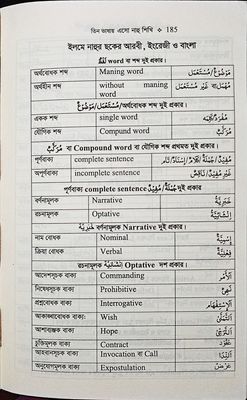 তিন ভাষায় এসো নাহু শিখি ❖ 185
ইলমে নাহুর ছকের আরবী, ইংরেজী ও বাংলা
لَفْظٌ word বা শব্দ দুই প্রকার।
অর্থবোধক শব্দ Maning word مَوْضُوْعٌ/مُسْتَعْمَلٌ
অর্থহীন শব্দ without maning word مُهْمَلٌ/غَيْرُ مُسْتَعْمَلٍ
مَوْضُوْعٌ/مُسْتَعْمَلٌ/অর্থবোধক শব্দ দুই প্রকার।
একক শব্দ single word مُفْرَدٌ/كَلِمَةٌ
যৌগিক শব্দ Compund word مُرَكَّبٌ
مُرَكَّبٌ বা Compound word বা যৌগিক শব্দ প্রথমত দুই প্রকার।
পূর্ণবাক্য complete sentence مُفِيْدٌ/جُمْلَةٌ/كَلَامٌ/إِسْنَادٌ/تَامٌّ
অপূর্ণবাক্য incomplete sentence غَيْرُ مُفِيْدٍ/نَاقِصٌ
পূর্ণবাক্য complete sentence مُفِيْدٌ/جُمْلَةٌ দুই প্রকার।
বর্ণনামূলক Narrative خَبَرِيَّةٌ
রচনামূলক Optative إِنْشَائِيَّةٌ
خَبَرِيَّةٌ বর্ণনামূলক Narrative দুই প্রকার।
নাম বোধক Nominal إِسْمِيَّةٌ
ক্রিয়া বোধক Verbal فِعْلِيَّةٌ
রচনামূলক Optative إِنْشَائِيَّةٌ দশ প্রকার।
আদেশসূচক বাক্য Commanding اَلْأَمْرُ
নিষেধসূচক বাক্য Prohibitive اَلنَّهْيُ
প্রশ্নবোধক বাক্য Interrogative اَلْإِسْتِفْهَامُ
আকাঙ্ক্ষাবোধক বাক্য: Wish اَلتَّمَنِّيْ
আশাব্যঞ্জক বাক্য Hope اَلتَّرَجِّيْ
চুক্তিমূলক বাক্য Contract عُقُوْدٌ
আহবানসূচক বাক্য Invocation বা Call اَلنِّدَاءُ
অনুযোগমূলক বাক্য Expostulation عَرْضٌ